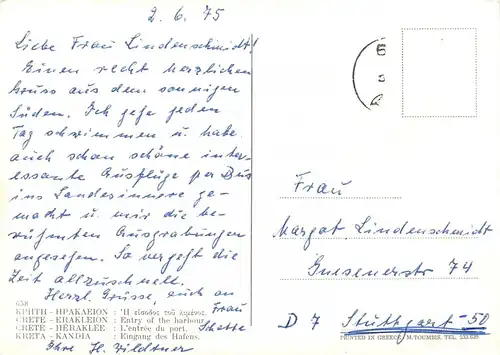 2.6.75
Liebe Frau Lindenschmidt!
Einen recht herzlichen
Gruss aus dem sonnigen
Süden. Ich gehe jeden
Tag schwimmen u. habe
auch schon schöne inter-
essante Ausflüge per Bus
ins Landesinnere ge-
macht u. mir die be-
rühmten Ausgrabungen
angesehen. So vergeht die
Zeit allzuschnell.
Herzl. Grüsse, auch an
Frau
Ihre H. Vildtner
638
ΚΡΗΤΗ - ΗΡΑΚΛΕΙΟΝ : Ἡ εἴσοδος τοῦ λιμένος.
CRETE - ERAKLEION : Entry of the harbour.
CRETE - HÉRAKLÉE : L'entrée du port.
KRETA - KANDIA : Eingang des Hafens.
Frau
Margot Lindenschmidt
Gnesenerstr 74
D 7 Stuttgart 50
PRINTED IN GREECE / M. TOUMBIS, TEL.